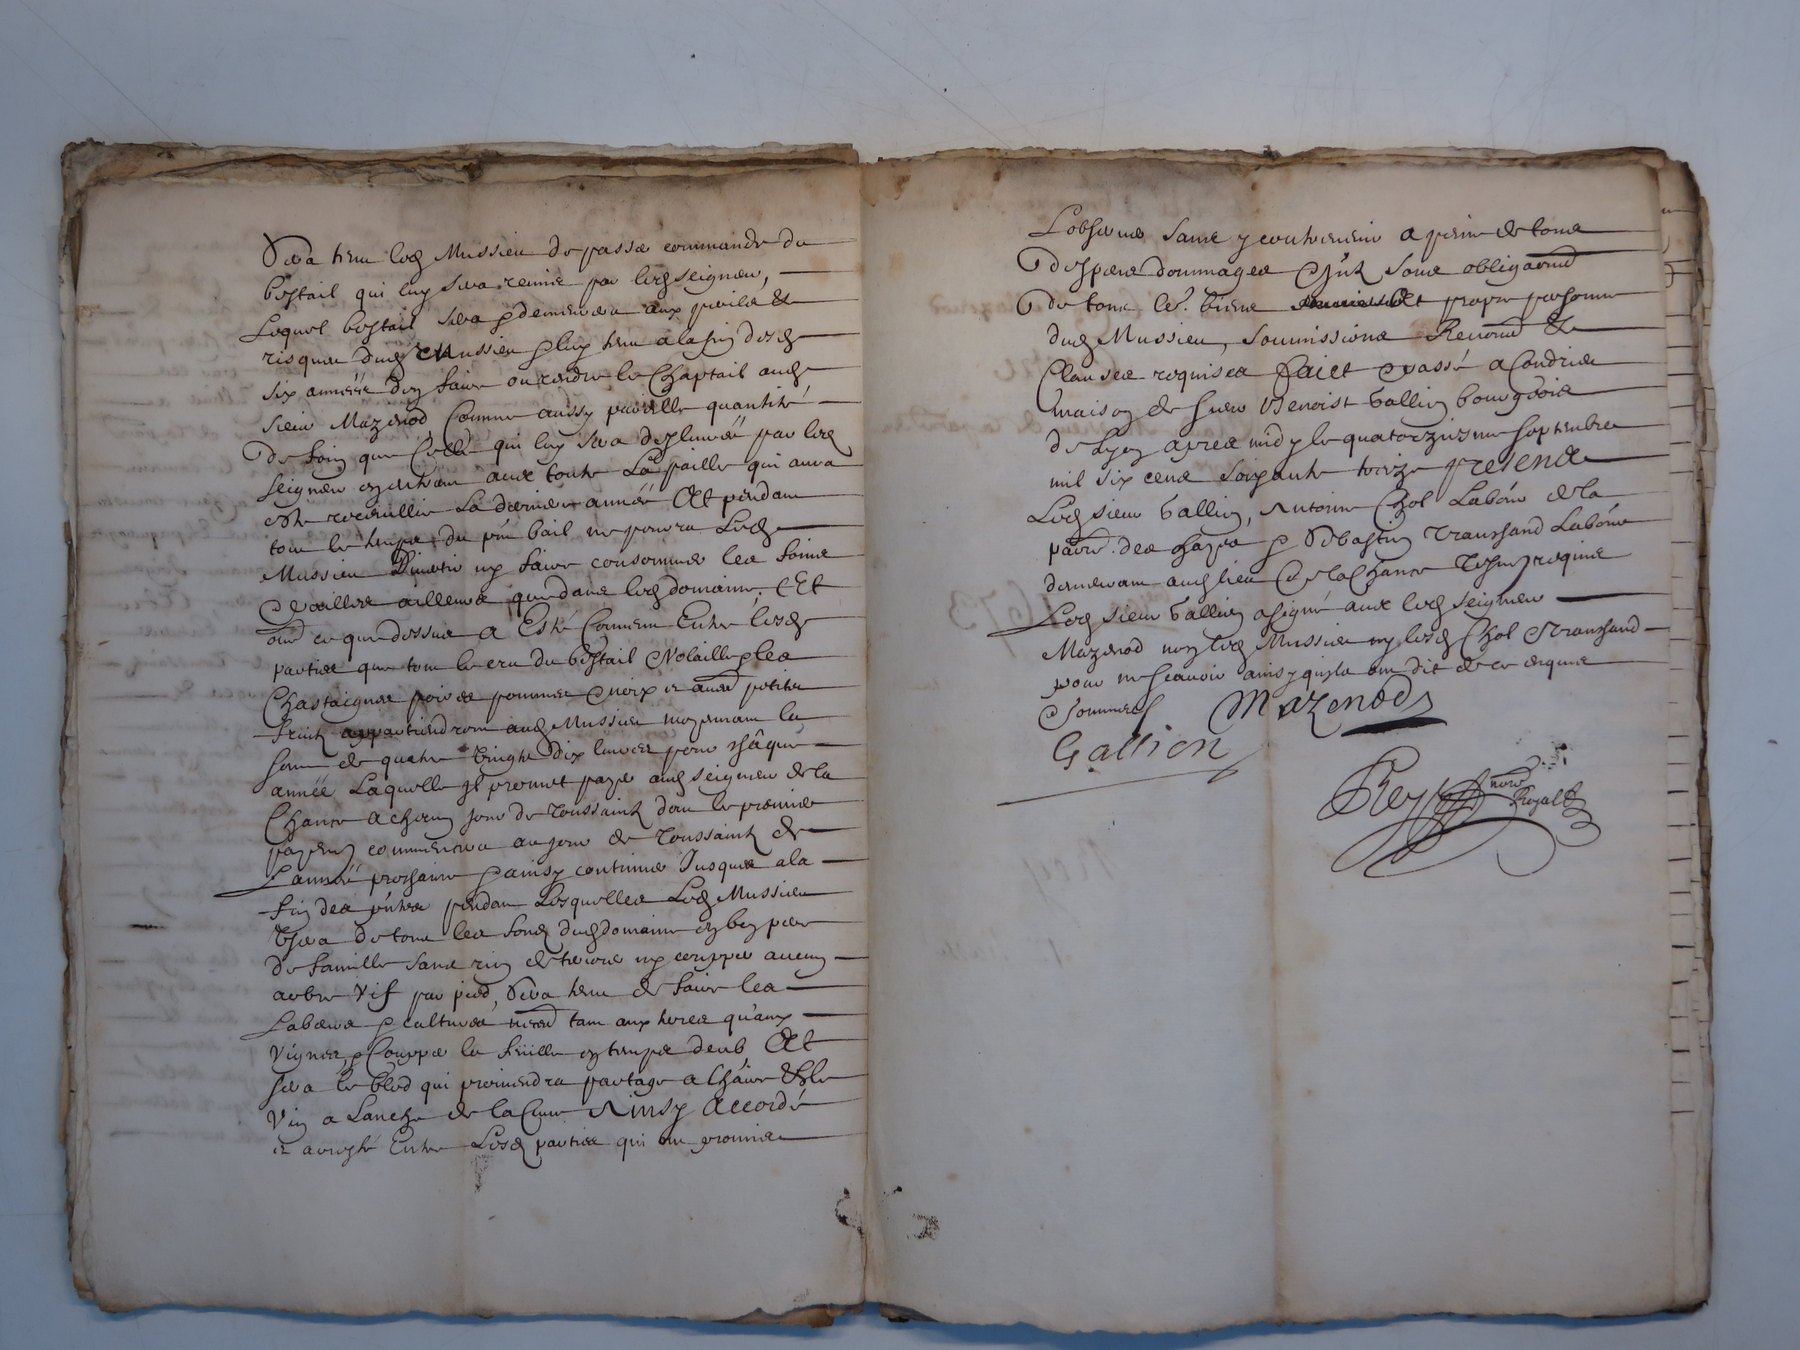 Sera tenu led Mussieu de passer commande du
bestail qui luy sera remis par led seigneur,
Lequel bestail sera & demeurera aux perils et
risques dud Mussieu & luy tenu a la fin desd
six années d'en faire ou rendre le Chaptail aud
sieur Mazenod Comme aussy pareille quantité
de foin que Celle qui luy sera deslivrée par led
seigneur en entrant avec toute La paille qui aura
esté recueillie La derniere année Et pendant
tout le temps du pnt bail ne pourra Led
Mussieu ny faire consommer les foins
& pailles ailleurs que dans led domaine. Et
oultre ce que dessus a Esté Convenu Entre lesd
parties que tout le cru du bestail Volaille & les
Chastaignes poires pommes & noix et aultres petits
fruits appartiendront aud Mussieu moyennant la
somme de quatre vingts dix livres pour châque
année Laquelle Il promet payer aud seigneur de la
Chance a chacun jour de Toussaints dont le premier
payement commencera au jour de Toussaints de
Lannée prochaine & ainsy continuer Jusques a la
fin des pntes pendant Lesquelles Led Mussieu
Usera de tous les fonds dud domaine en bon pere
de famille sans rien deteriorer ny coupper aucun
arbre Vif par pied, Sera tenu de faire les
Labeurs & cultures necess tant aux terres qu'aux
Vignes, & Coupper la fuille en temps deub Et
sera le bled qui proviendra partagé a Lhaire & le
Vin a Lanche de la Cuve Ainsy accordé
et arresté Entre Lesd parties qui ont promis
Lobserver sans y contrevenir a peine de tous
despens dommages & Intz sous obligaōn
de tous les biens et propre personne
dud Mussieu, soumissions Renonciaōn &
Clauses requises Faict & passé a Condrieu
maison de sieur Benoist Gallien bourgeois
de Lyon apres midy le quatorziesme septembre
mil six cens soixante treize presens
Led sieur Gallien, Antoine Chol Labōur de la
parr. des hayes & Sebastien Tranchand Labōur
demeurant aud lieu de la Chance Tesmoins requis
Led sieur Gallien a signé avec led seigneur
Mazenod non led Mussieu ny lesd Chol & Tranchand
pour ne scavoir ainsy quils ont dit de ce enquis
& sommés
Mazenod
Gallien
Rey nore Royal